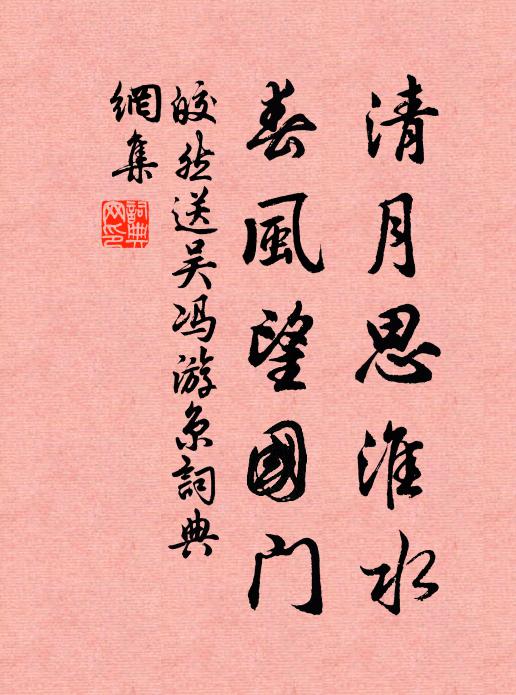 清月思淮水
春風望國门
皎然送吴冯游京詞典
網集
詞典
网印